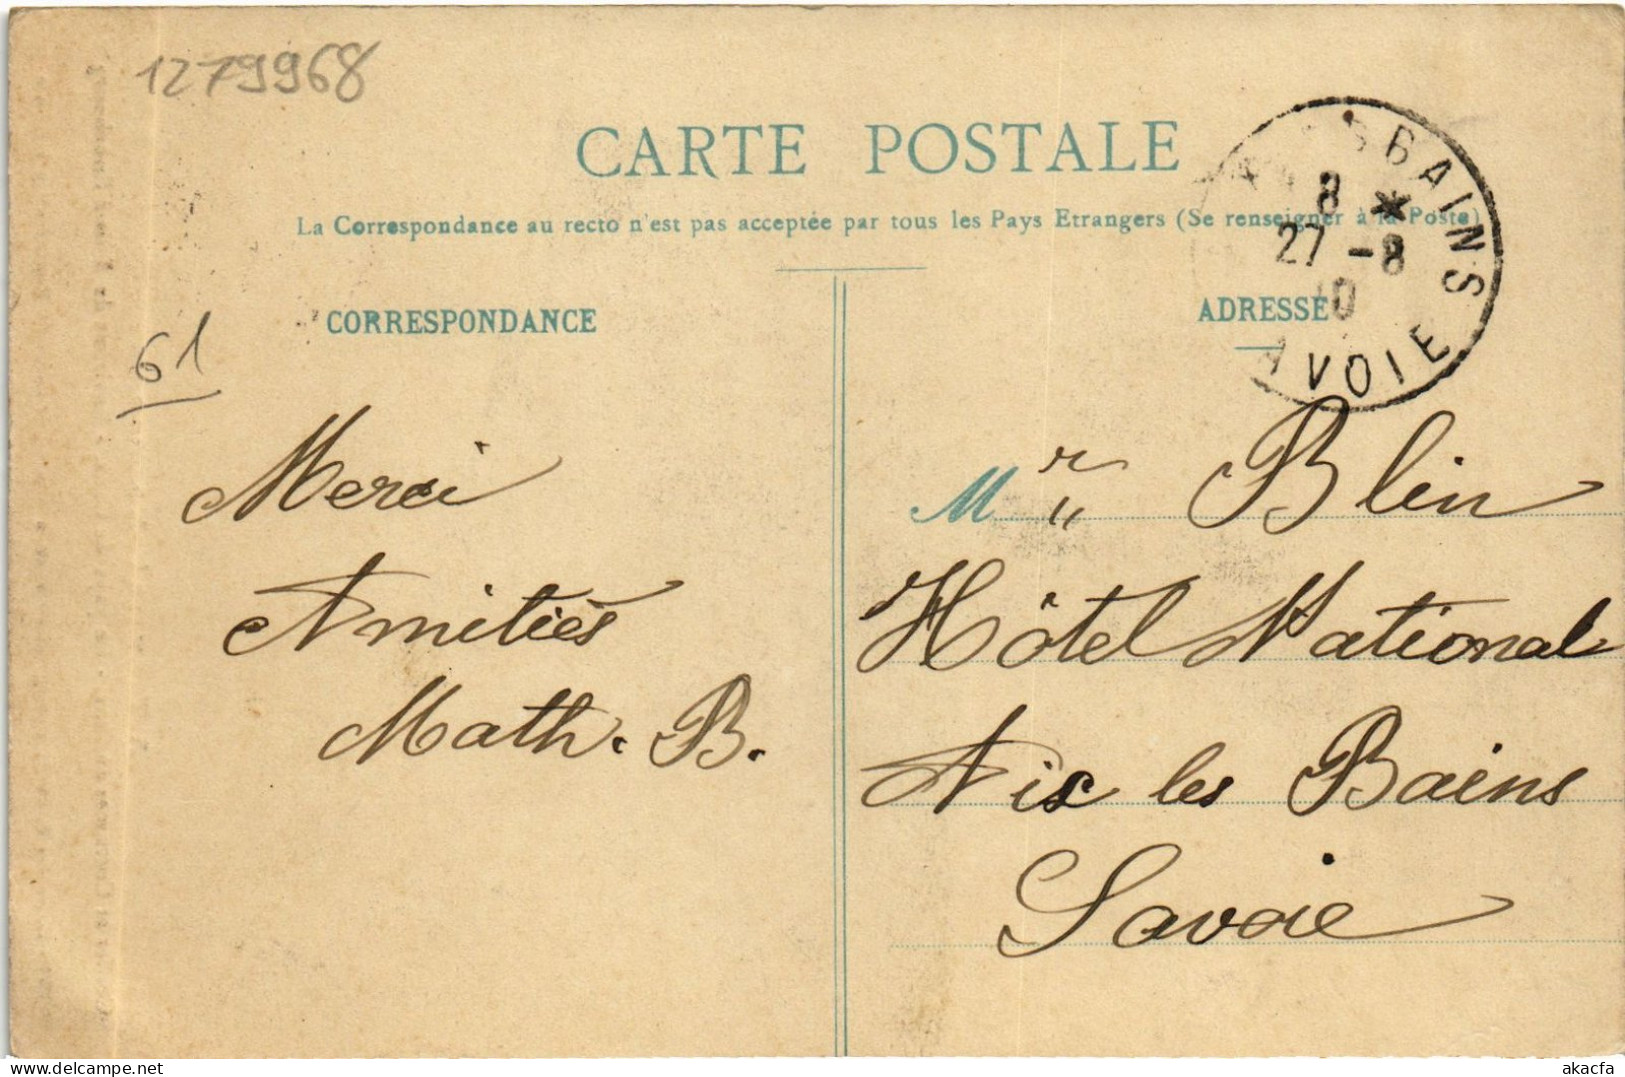 1279968
CARTE POSTALE
La Correspondance au recto n'est pas acceptée par tous les Pays Etrangers (Se renseigner à la Poste)
SBAINS
8 *
27 -8
10
AVOIE
CORRESPONDANCE
ADRESSE
61
Merci
Amitiés
Math. B.
M r Blin
Hôtel National
Aix les Bains
Savoie
akacfa